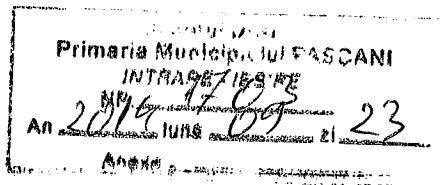 Primaria Municipiului PASCANI
INTRARE / IESIRE
NR. 1703
An 2014 luna 09 zi 23
Anexe